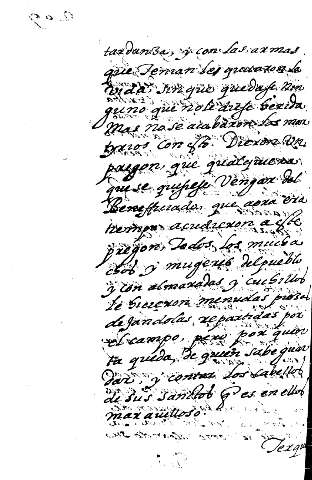 tardanza, y con las armas
que Tenian les quitaron la
vida, sin que quedase nin
guno que no le diese herida
Mas no se acabaron los mar
tyrios con esto. Dieron Un
pregon, que qualquiera
que se quisiese Vengar del
Beneficiado, que aora era
tiempo acudieron a este
pregon, Todos los mucha
chos y mugeres del pueblo
y con almaradas y cuchillos
le hicieron menudas piezas
dejandolas repartidas por
el campo, pero por quen
ta queda, de quien sabe guar
dar, y contar los cabellos
de sus sanctos q̃ es en ellos
maravilloso.